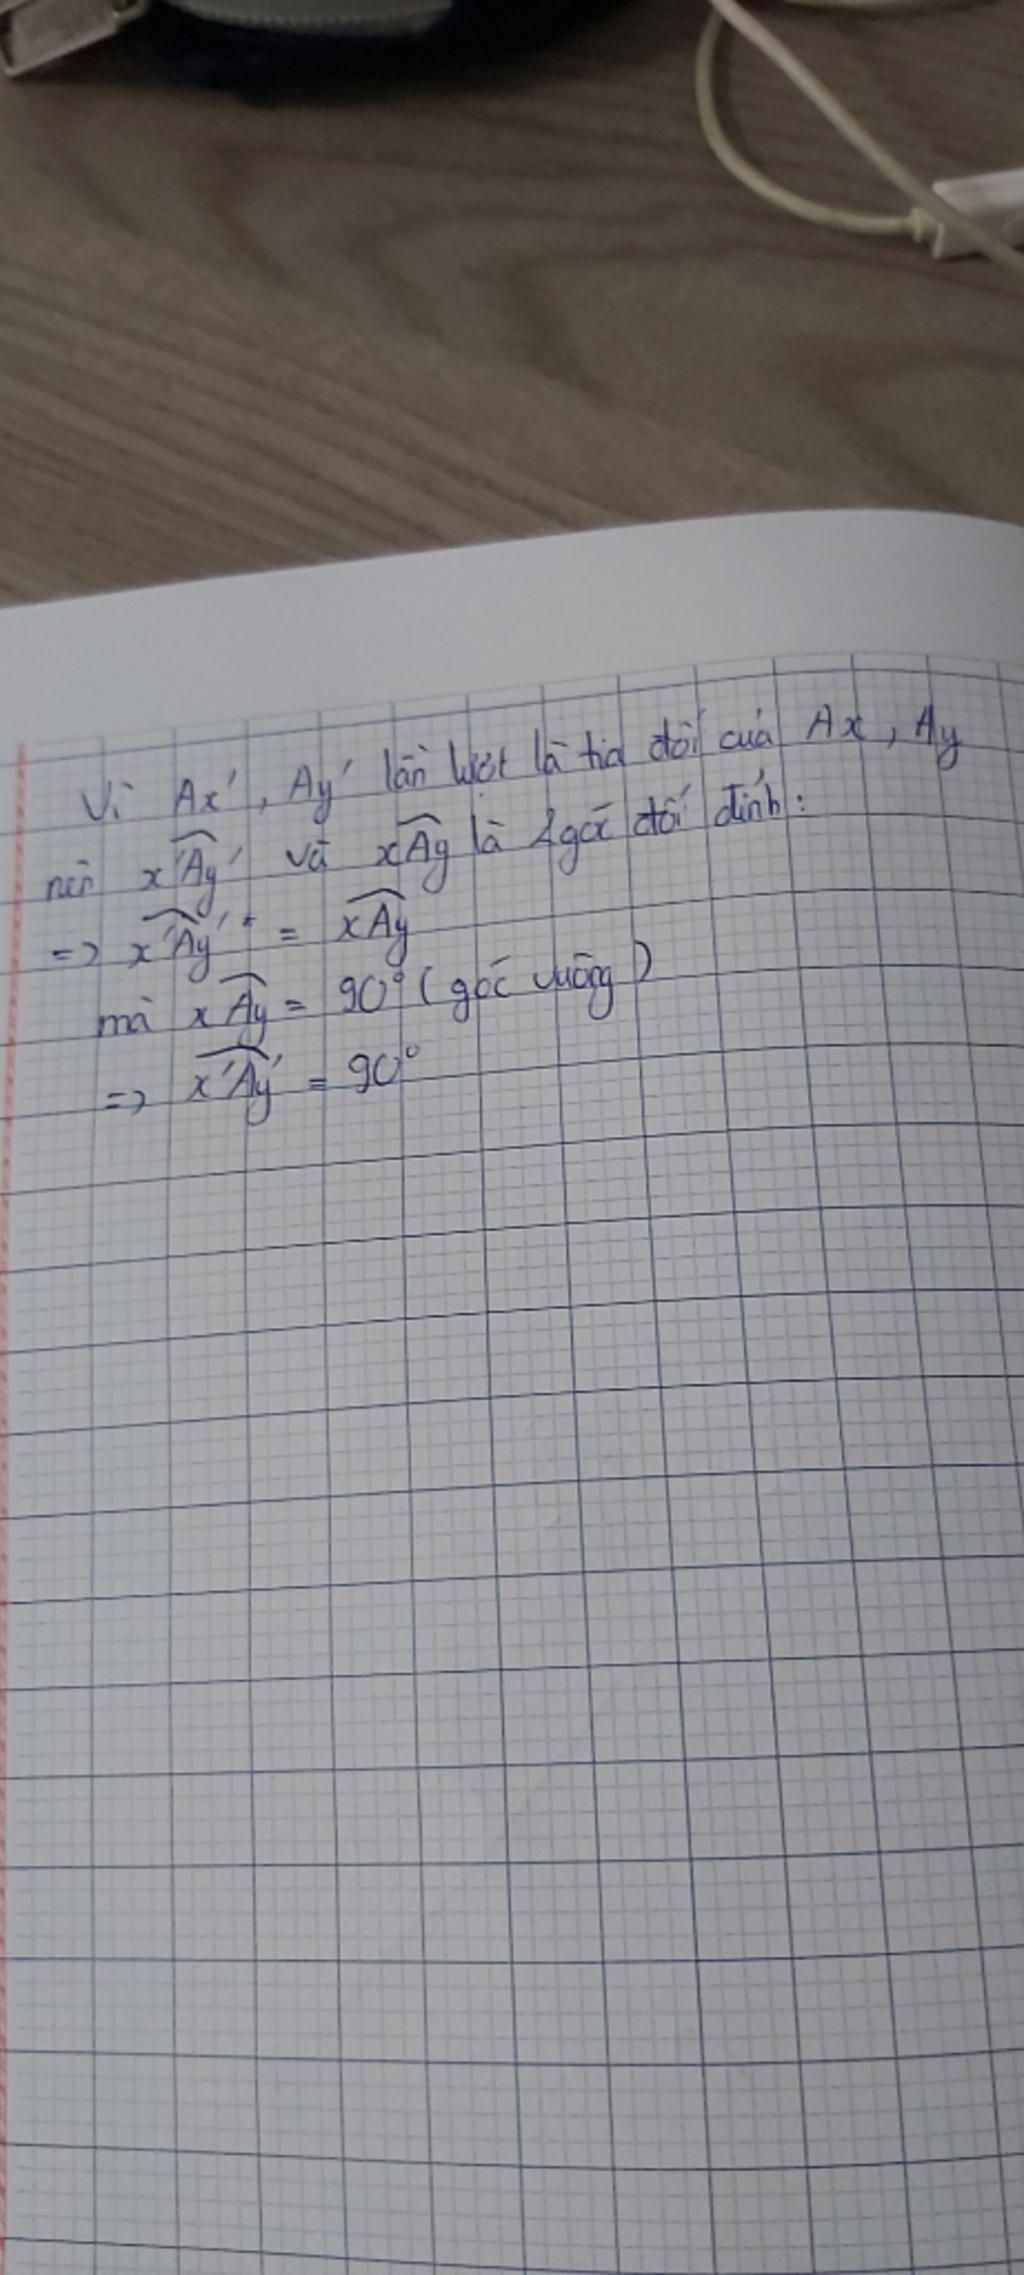 Vì Ax', Ay' lần lượt là tia đối của Ax, Ay
nên x'Ây' và xÂy là 2 góc đối đỉnh:
=> x'Ây' = xÂy
mà xÂy = 90° (góc vuông)
=> x'Ây' = 90°